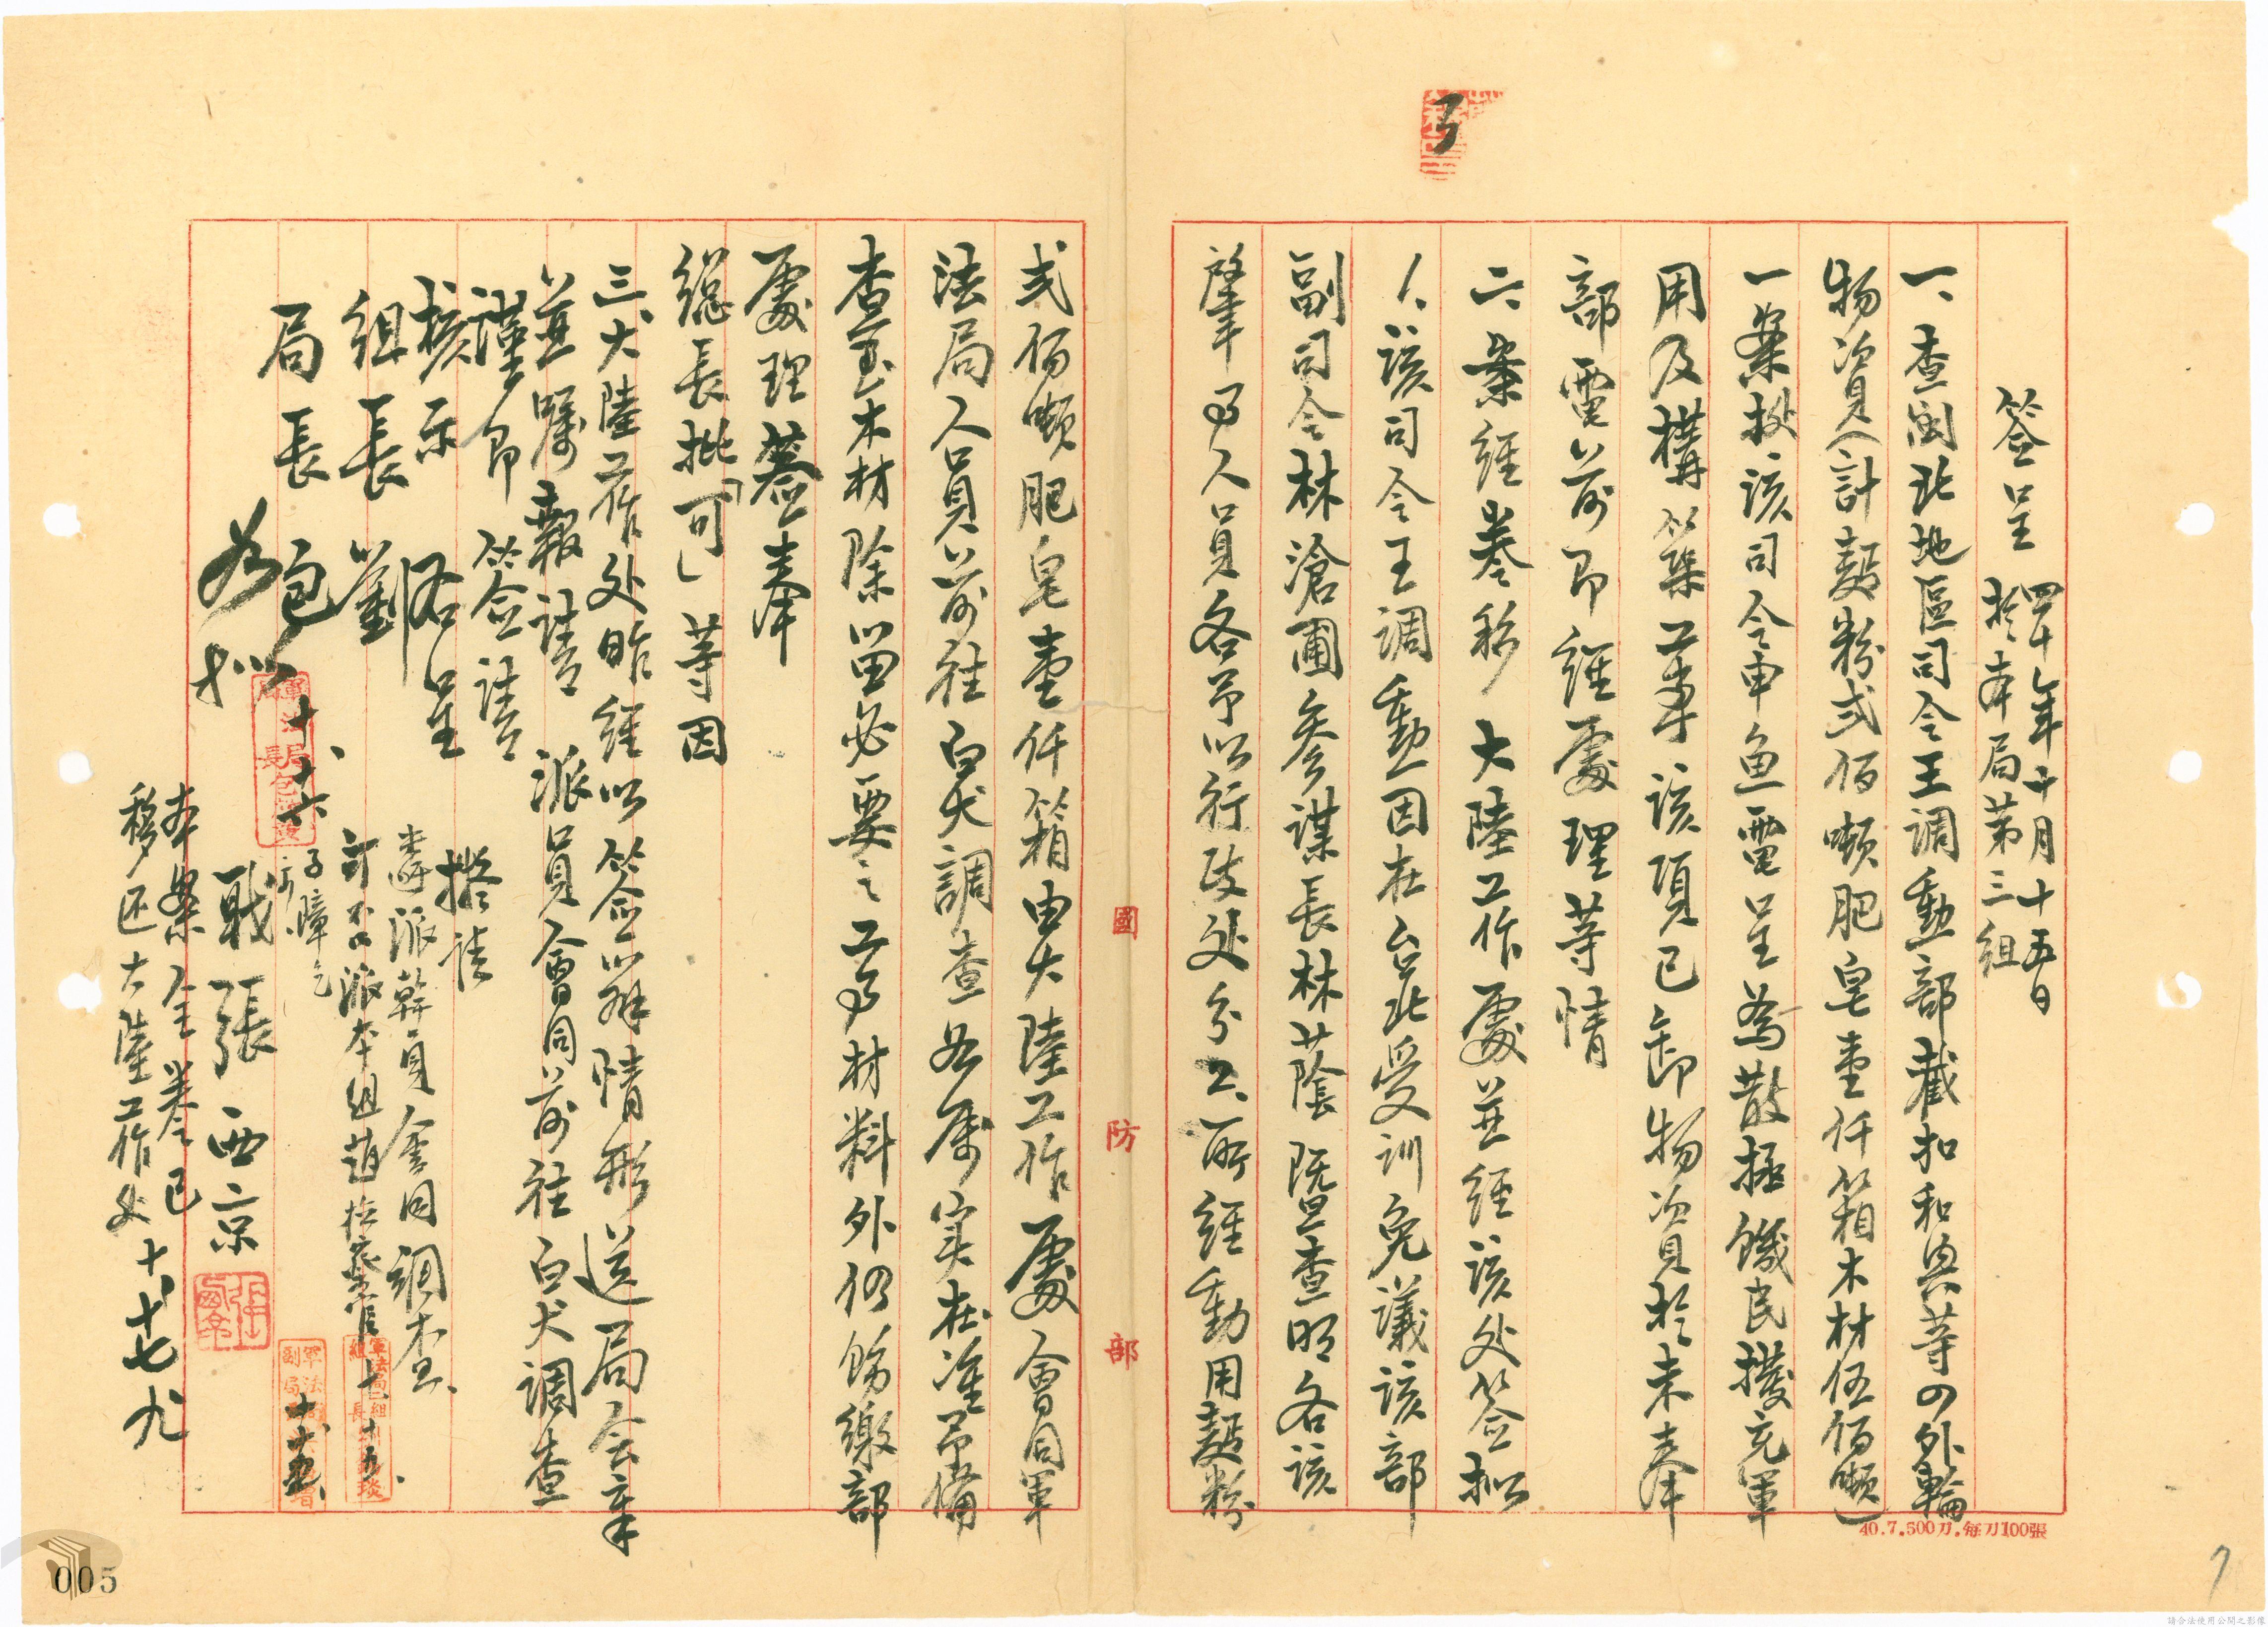 簽呈 四十年十月十五日
於本局第三組
一、查閩北地區司令王調勳部截扣和興等四外輪
物資(計麵粉弍佰噸肥皂壹仟箱木材伍佰噸)
一案據該司令申魚電呈為散拯饑民撥充軍
用及構築工事該項已卸物資於未奉
部電前即經處理等情
二、案經卷移大陸工作處並經該处簽拟
1、該司令王調勳因在台北受訓免議該部
副司令林滄圃參謀長林蔭暨查明各該
肇事人員各予以行政处分2、所經動用麵粉
弍佰噸肥皂壹仟箱由大陸工作處會同軍
法局人員前往白犬調查如屬实在准予備
查至木材除留必要之工事材料外仍飭繳部
處理簽奉
總長批「可」等因
三、大陸工作处昨經以簽辦情形送局会章
並囑報請 派員會同前往白犬調查
謹即簽請
核示 右呈
組長劉
局長包
職張西京
擬請
遴派幹員會同調查
可否派本組趙檢察官
如拟
十、十六
軍法局局長包
軍法局副局長
十、十五
十、十五
本案全卷已
移送大陸工作处
十、十七
國防部
40.7.500刀.每刀100張
005
7
請合法使用公開之影像